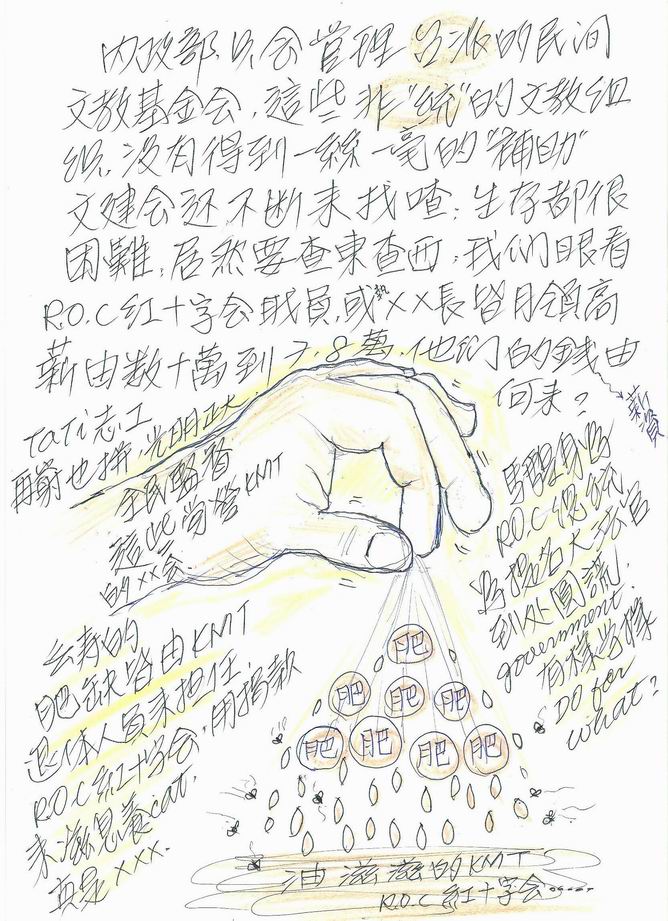 內政部只会管理台派的民间
文教基金会,這些非"統"的文教組
組,沒有得到一絲一毫的"補助"
文建会还不断来找喳;生存都很
困難,居然要查東查西;我们眼看
R.O.C紅十字会成員,或XX長皆月領高
薪由数十萬到7.8萬,他们的錢由
何来?
薪資
TaTi志工
再窮也拼,光明正大.
全民監督
這些當燈KMT
的XX会
去壽的
肥缺皆由KMT
退休人員来担任.
R.O.C紅十字会,用捐款
来滋息養cat.
真是XXX.
馬騜身為
R.O.C總統
為提名大法官
到处圓謊.
government.
有樣學樣
DO for
what?
肥
肥 肥 肥
肥 肥 肥 肥
油滋滋的KMT
R.O.C紅十字会......